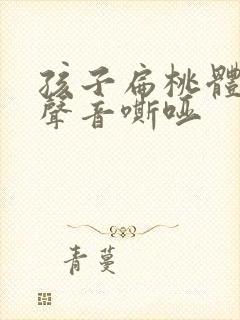 孩子扁桃體
聲音嘶啞
青蔓